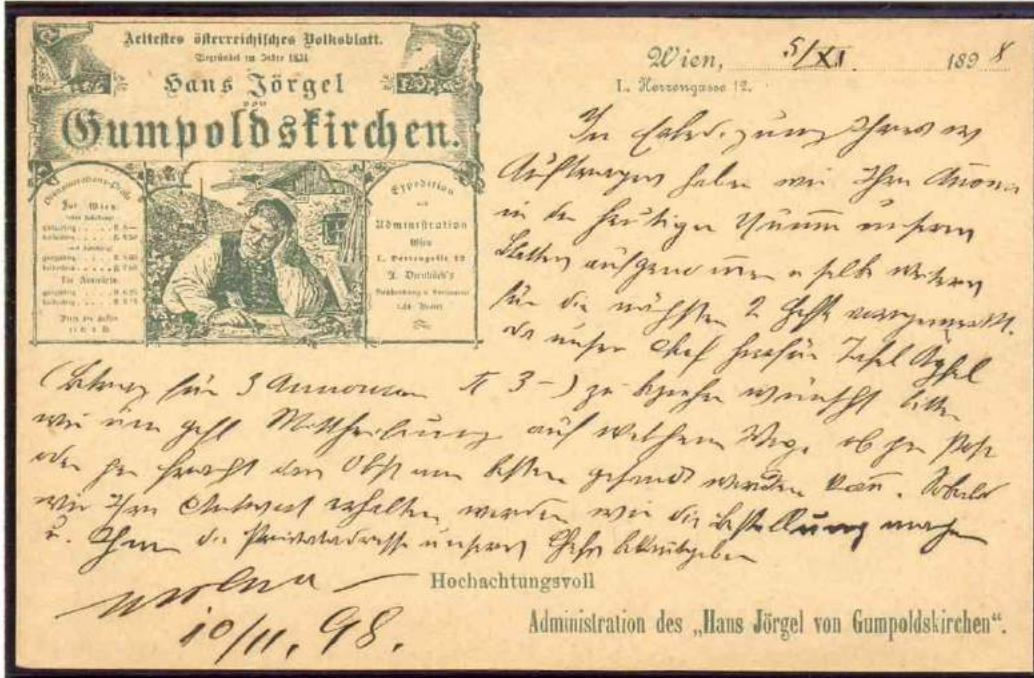 Aeltestes österreichisches Volksblatt.
Begründet im Jahre 1831
Hans Jörgel
von
Gumpoldskirchen.
Pränumerations-Preise
Für Wien:
ganzjährig
halbjährig
ganzjährig
halbjährig
Für Auswärts
ganzjährig
halbjährig
Expedition
und
Administration
Wien
I. Herrengasse 12
Wien, 5/XI. 1898
I. Herrengasse 12.
In Erledigung Ihres
Auftrages haben wir Ihre Annonce
in der heutigen Numm unseres
Blattes aufgenommen u selbe weiters
für die nächsten 2 Hefte vorgemerkt.
Da unser Chef hiefür Tafel Äpfel
(Betrag für 3 Annoncen fl 3–) zu beziehen wünscht bitten
wir um gefl Mittheilung auf welchem Wege ob per Post
oder per Fracht das Obst am besten gesandt werden kann. Sobald
wir Ihre Antwort erhalten werden wir die Bestellung machen
u. Ihnen die Privatadresse unseres Chefs bekanntgeben
Hochachtungsvoll
Administration des „Hans Jörgel von Gumpoldskirchen“.
10/11. 98.